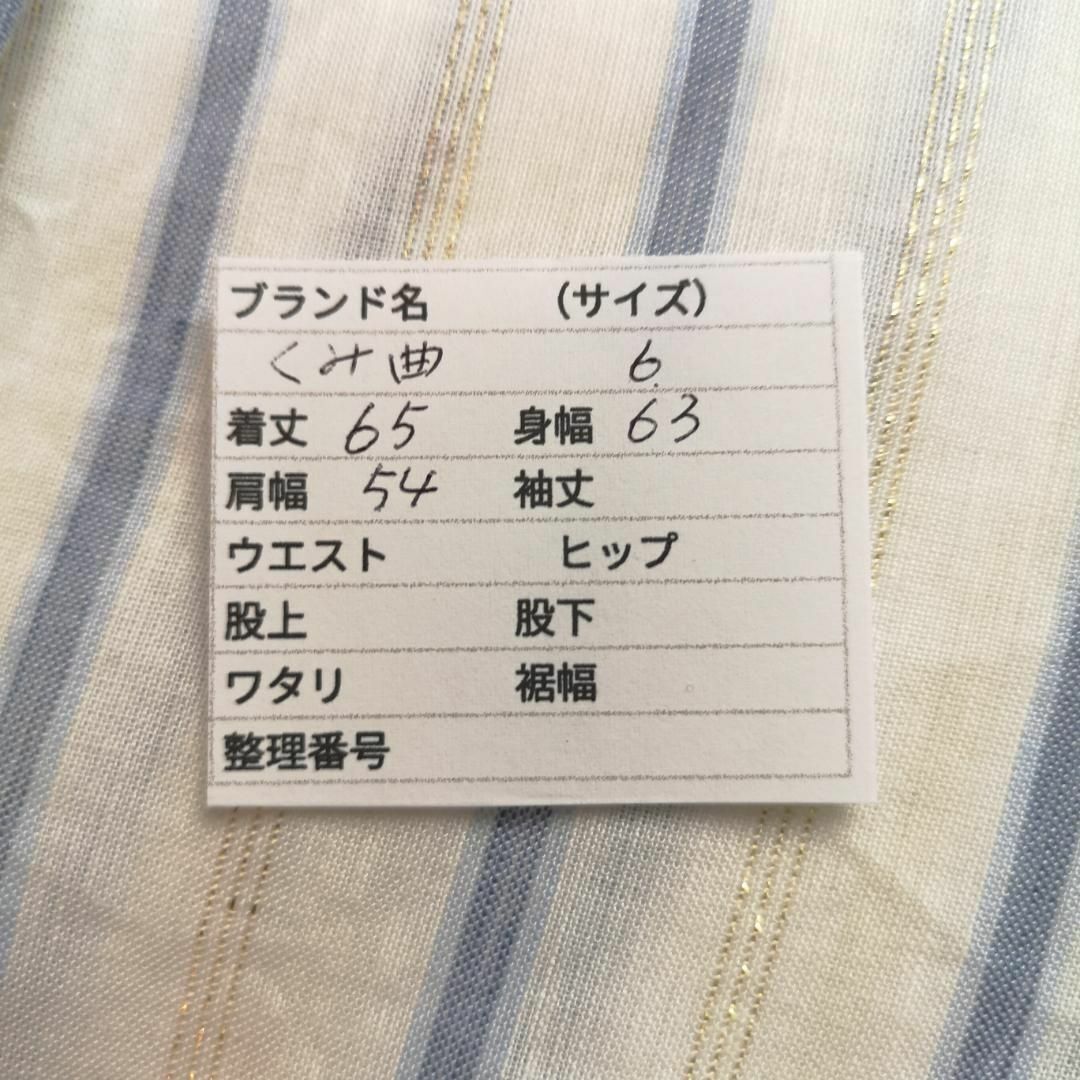 ブランド名 （サイズ）
くみ曲 6.
着丈 65 身幅 63
肩幅 54 袖丈
ウエスト ヒップ
股上 股下
ワタリ 裾幅
整理番号